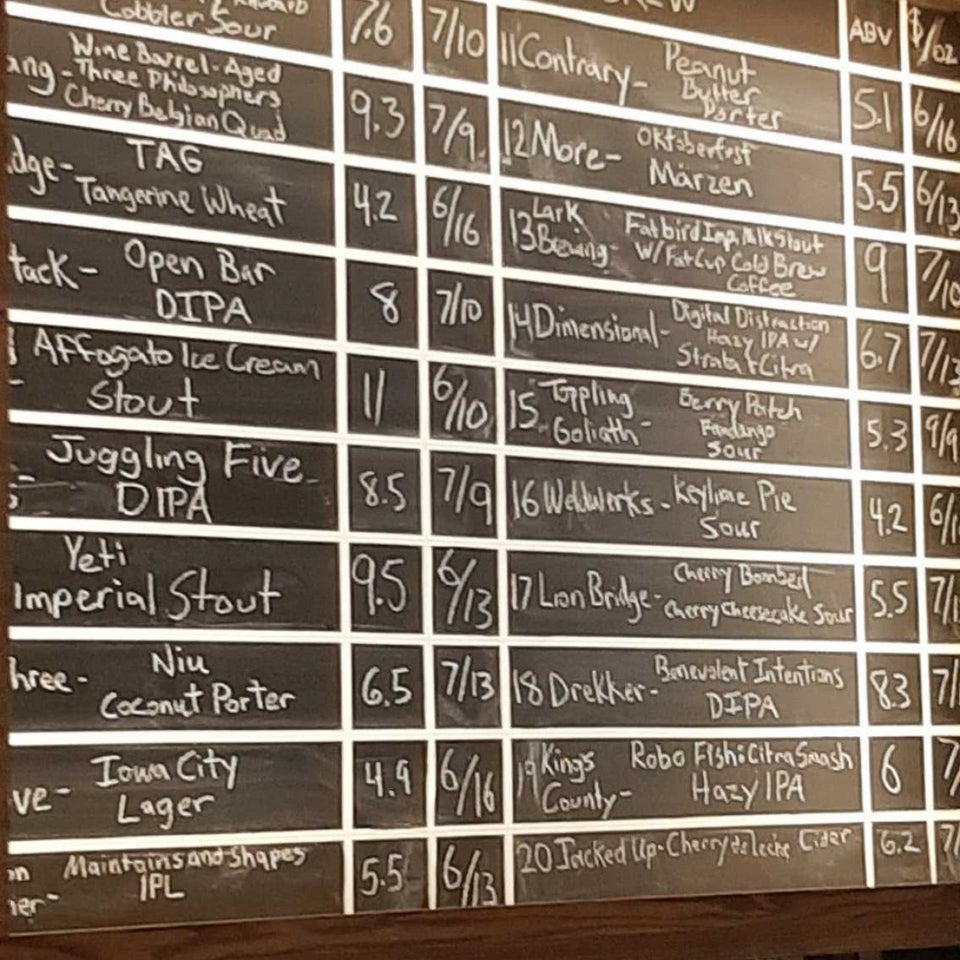 Cobbler Sour 7.6 7/10
ang - Wine Barrel-Aged
Three Philosophers
Cherry Belgian Quad 9.3 7/9
dge - TAG
Tangerine Wheat 4.2 6/16
tack - Open Bar
DIPA 8 7/10
Affogato Ice Cream
Stout 11 6/10
Juggling Five
DIPA 8.5 7/9
Yeti
Imperial Stout 9.5 6/13
hree - Niu
Coconut Porter 6.5 7/13
ve - Iowa City
Lager 4.9 6/16
Maintains and Shapes
er - IPL 5.5 6/13
ABV $/oz
11 Contrary - Peanut
Butter
Porter 5.1 6/16
12 More - Oktoberfest
Märzen 5.5 6/13
13 Lark
Brewing - Fatbird Imp. Milk Stout
W/ Fat Cup Cold Brew
Coffee 9 7/10
14 Dimensional - Digital Distraction
Hazy IPA w/
Strata + Citra 6.7 7/13
15 Toppling
Goliath - Berry Patch
Fandango
Sour 5.3 9/9
16 Weldwerks - Keylime Pie
Sour 4.2 6/
17 Lion Bridge - Cherry Bombed
Cherry Cheesecake Sour 5.5 7/
18 Drekker - Benevolent Intentions
DIPA 8.3 7/
19 Kings
County - Robo Fish: Citra Smash
Hazy IPA 6 7
20 Jacked Up - Cherry de Leche Cider 6.2 7/